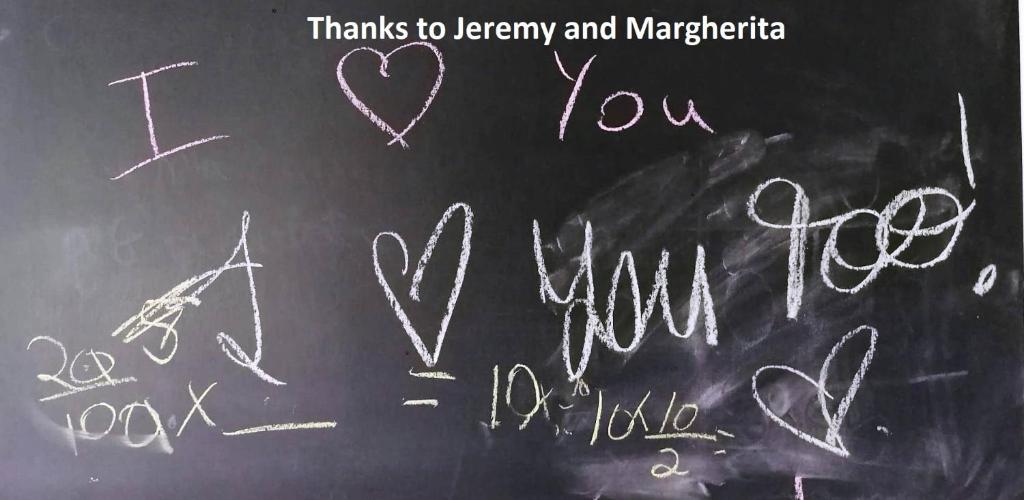 Thanks to Jeremy and Margherita
I ♡ You
I ♡ You too!
20/100 × __ = 10x 10x 10/2 = ♡